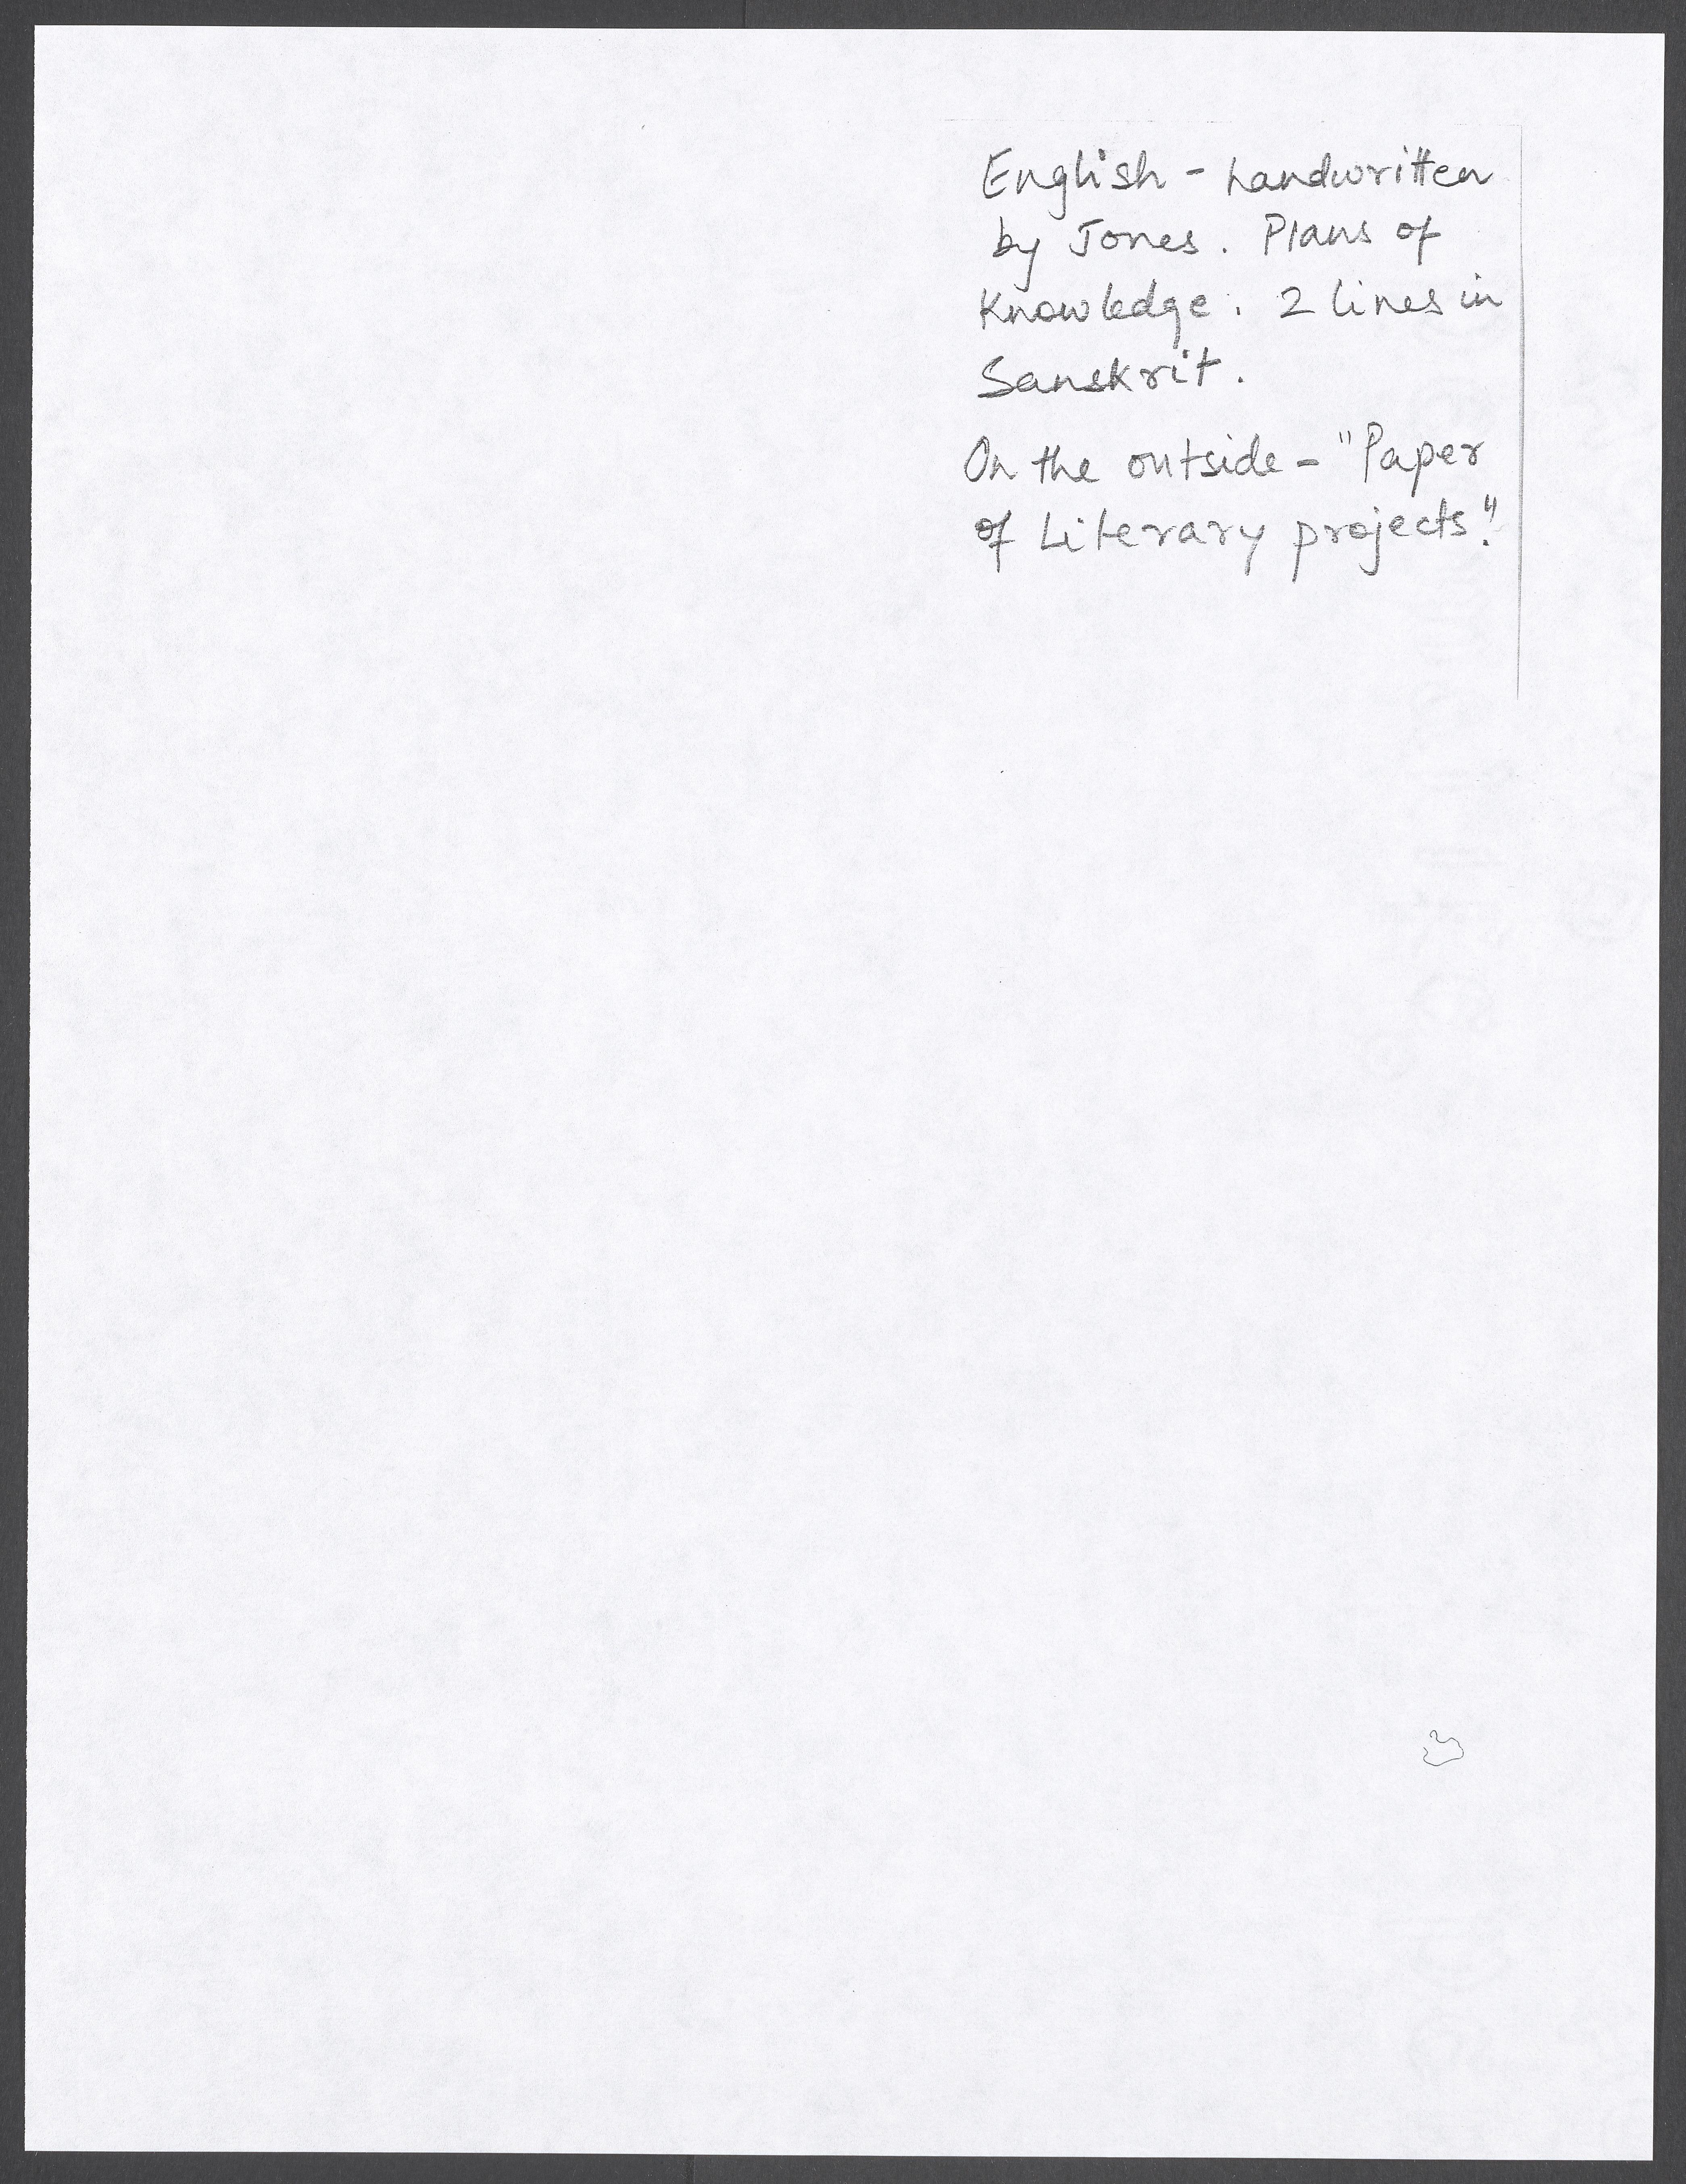 English - handwritten
by Jones. Plans of
Knowledge. 2 lines in
Sanskrit.
On the outside - "Paper
of Literary projects."